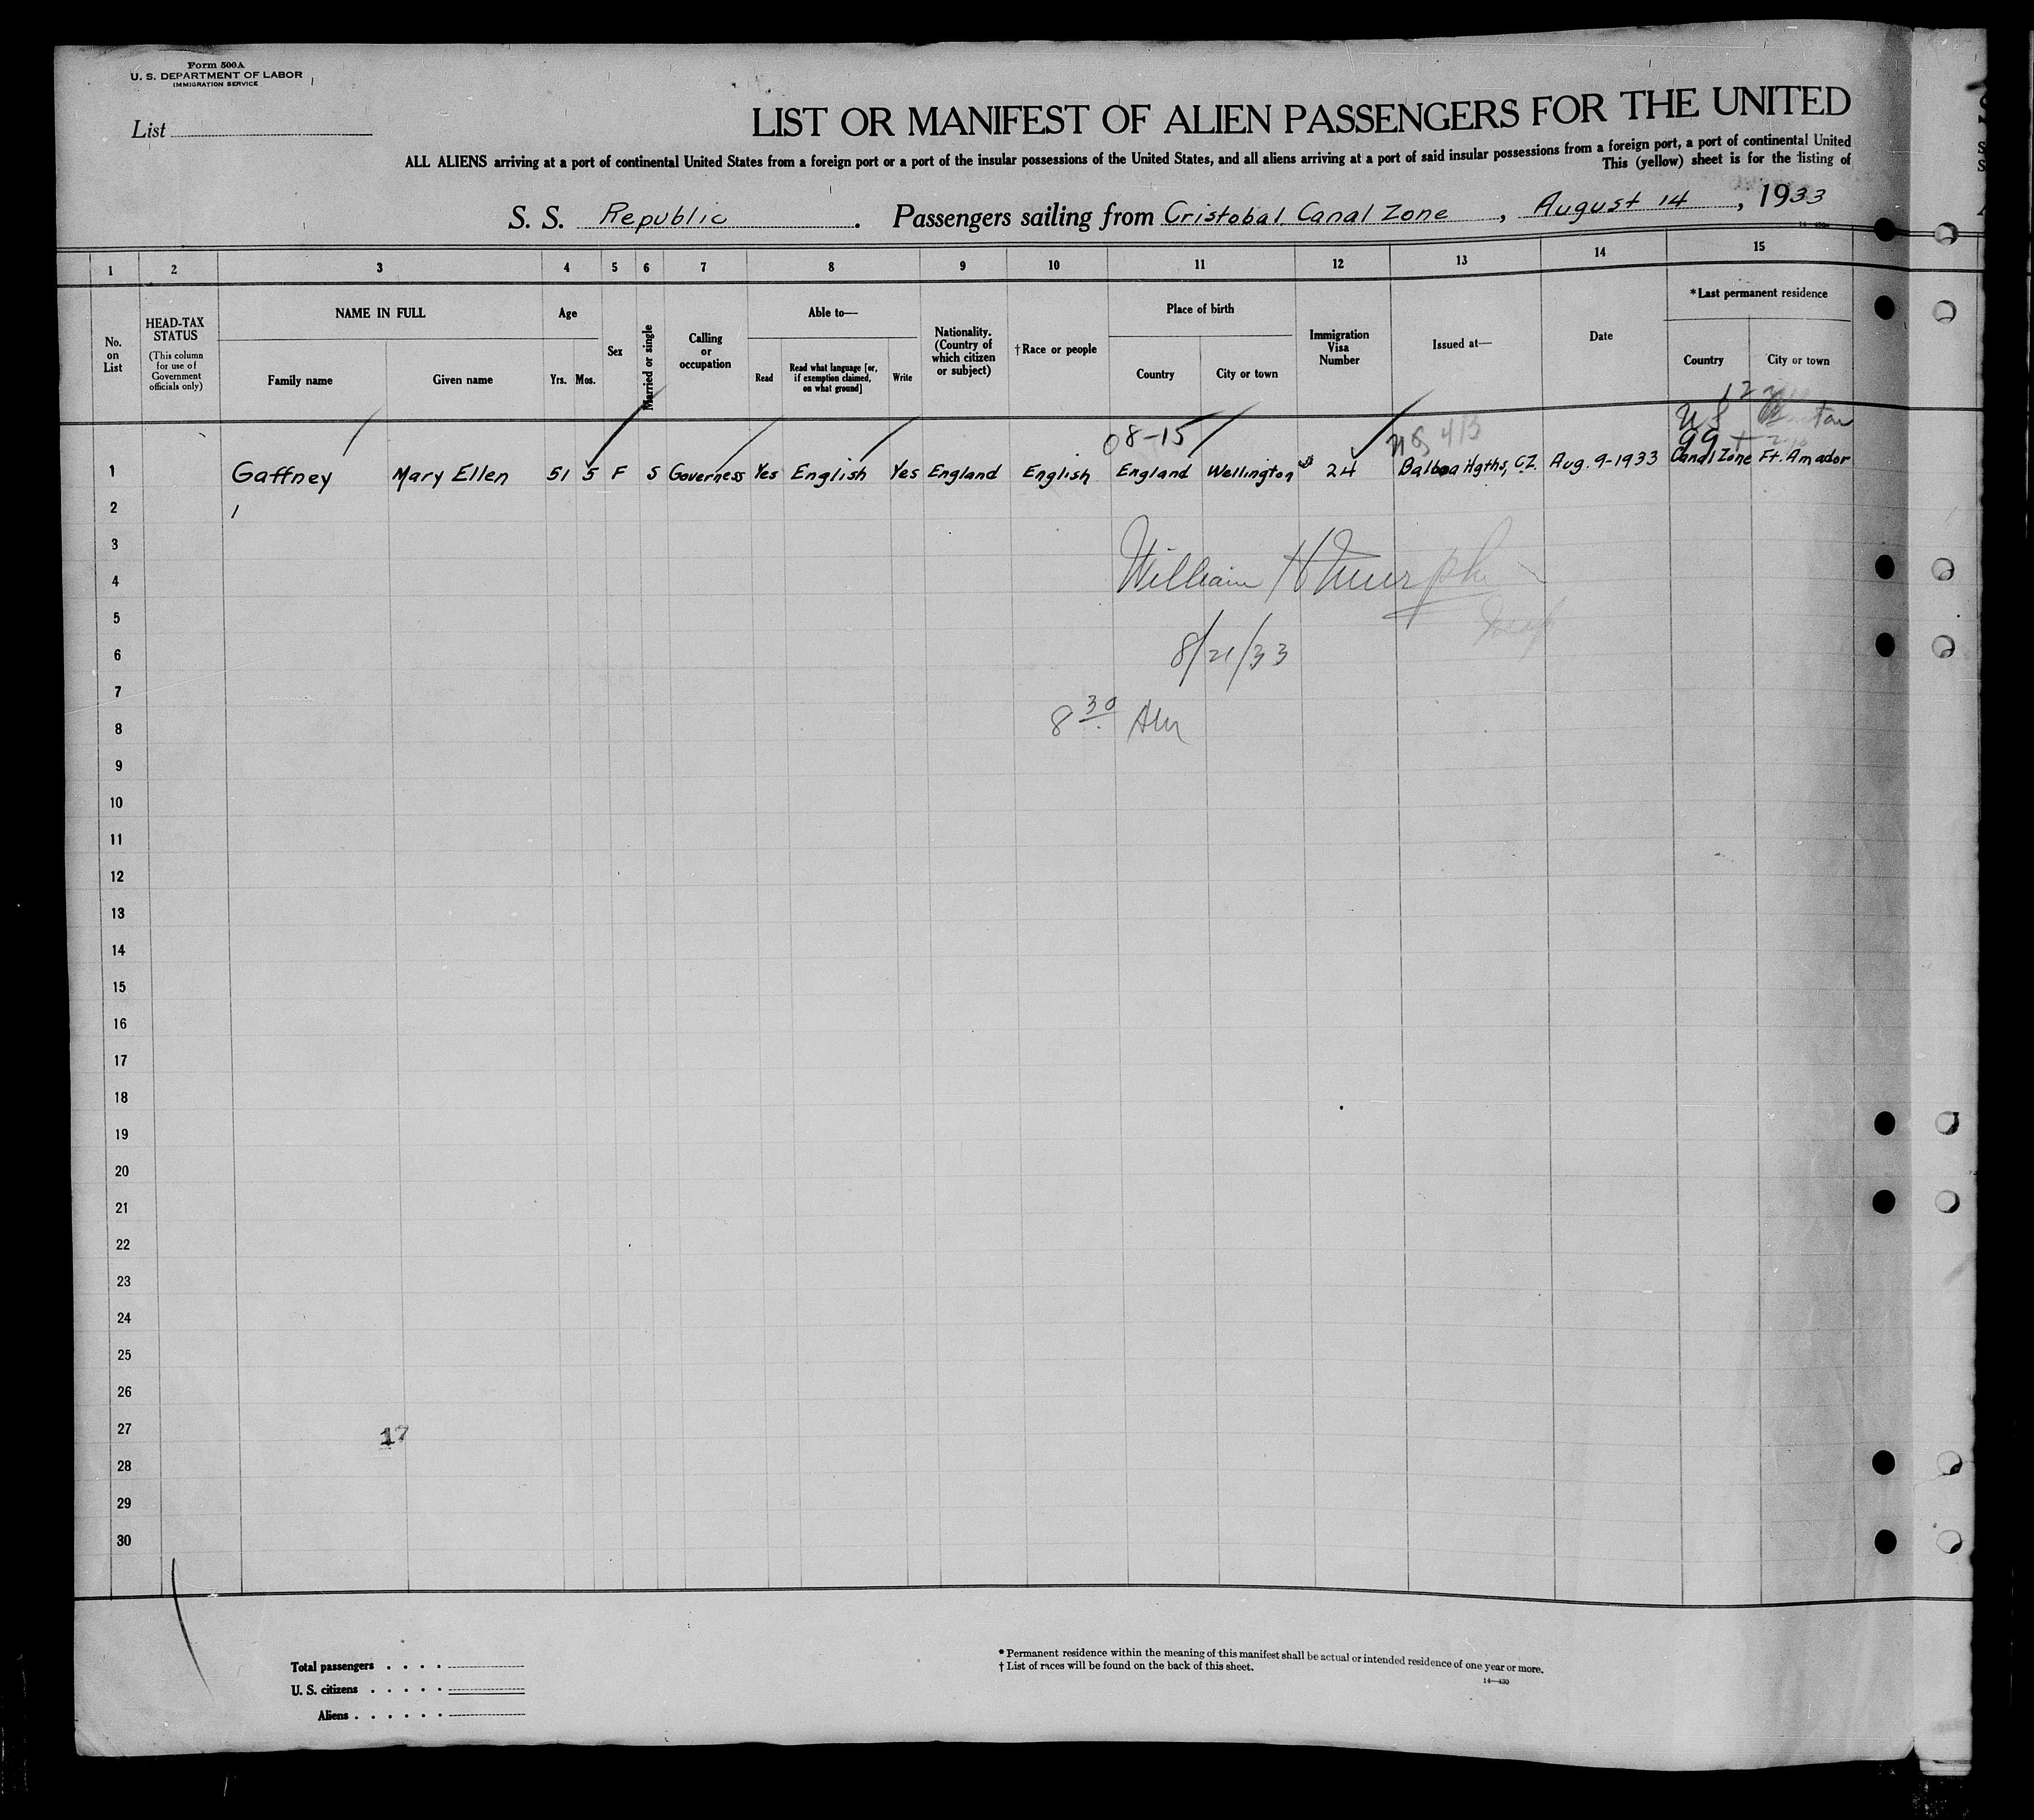 Form 500A
U. S. DEPARTMENT OF LABOR
IMMIGRATION SERVICE
List
LIST OR MANIFEST OF ALIEN PASSENGERS FOR THE UNITED
ALL ALIENS arriving at a port of continental United States from a foreign port or a port of the insular possessions of the United States, and all aliens arriving at a port of said insular possessions from a foreign port, a port of continental United
This (yellow) sheet is for the listing of
S. S. Republic. Passengers sailing from Cristobal, Canal Zone, August 14, 1933
1 2 3 4 5 6 7 8 9 10 11 12 13 14 15
No. on List
HEAD-TAX STATUS
(This column for use of Government officials only)
NAME IN FULL
Family name Given name
Age
Yrs. Mos.
Sex
Married or single
Calling or occupation
Able to—
Read
Read what language [or, if exemption claimed, on what ground]
Write
Nationality. (Country of which citizen or subject)
†Race or people
Place of birth
Country City or town
Immigration Visa Number
Issued at—
Date
*Last permanent residence
Country City or town
08-15 413
US
99
1 Gaffney Mary Ellen 51 5 F S Governess Yes English Yes England English England Wellington 24 Balboa Hgths, C.Z. Aug. 9-1933 Canal Zone Ft. Amador
2 1
3
4 William H
5
6 8/21/33
7
8 8 30 AM
9
10
11
12
13
14
15
16
17
18
19
20
21
22
23
24
25
26
27 17
28
29
30
Total passengers
U. S. citizens
Aliens
* Permanent residence within the meaning of this manifest shall be actual or intended residence of one year or more.
† List of races will be found on the back of this sheet.
14—430